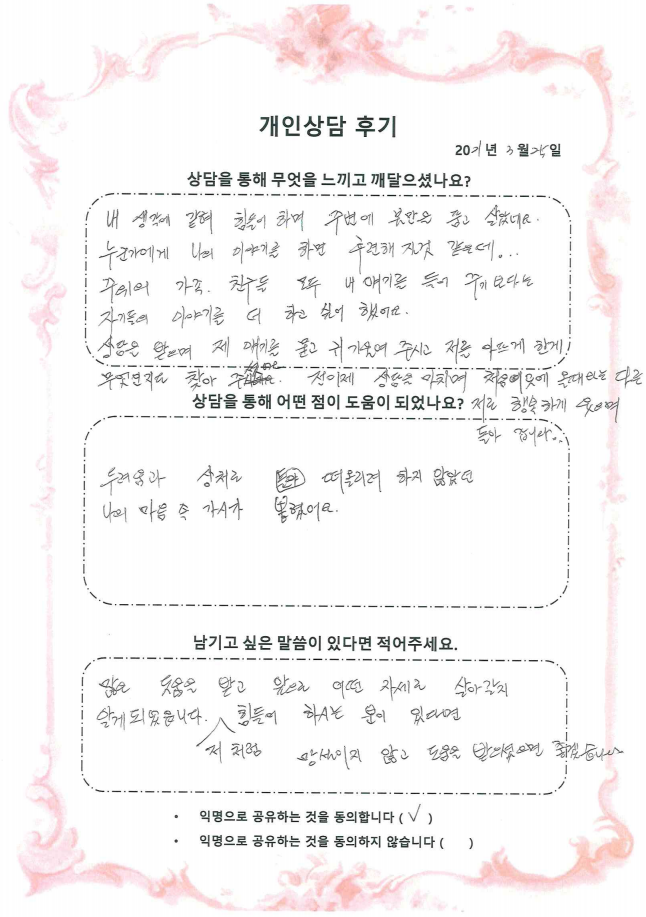 개인상담 후기
2021년 3월 25일
상담을 통해 무엇을 느끼고 깨달으셨나요?
내 생각에 갇혀 힘들어 하며 주변에 불만을 품고 살았네요.
누군가에게 나의 이야기를 하면 후련해 질것 같은데...
주위의 가족. 친구들 모두 내 얘기를 들어 주기 보다는
자기들의 이야기를 더 하고 싶어 했어요.
상담을 받으며 제 얘기를 묻고 귀 기울여 주시고 저를 아프게 한게
무엇인지도 찾아 전 이제 상담을 마치며 처음 이곳에 올때와는 다른
상담을 통해 어떤 점이 도움이 되었나요? 저로 행복하게 웃으며
돌아 갑니다..
두려움과 상처로 떠올리려 하지 않았던
나의 마음 속 가시가 뽑혔어요.
남기고 싶은 말씀이 있다면 적어주세요.
많은 도움을 받고 앞으로 어떤 자세로 살아갈지
알게 되었습니다. 힘들어 하시는 분이 있다면
저 처럼 망설이지 않고 도움을 받으셨으면 좋겠습니다
• 익명으로 공유하는 것을 동의합니다 ( √ )
• 익명으로 공유하는 것을 동의하지 않습니다 ( )